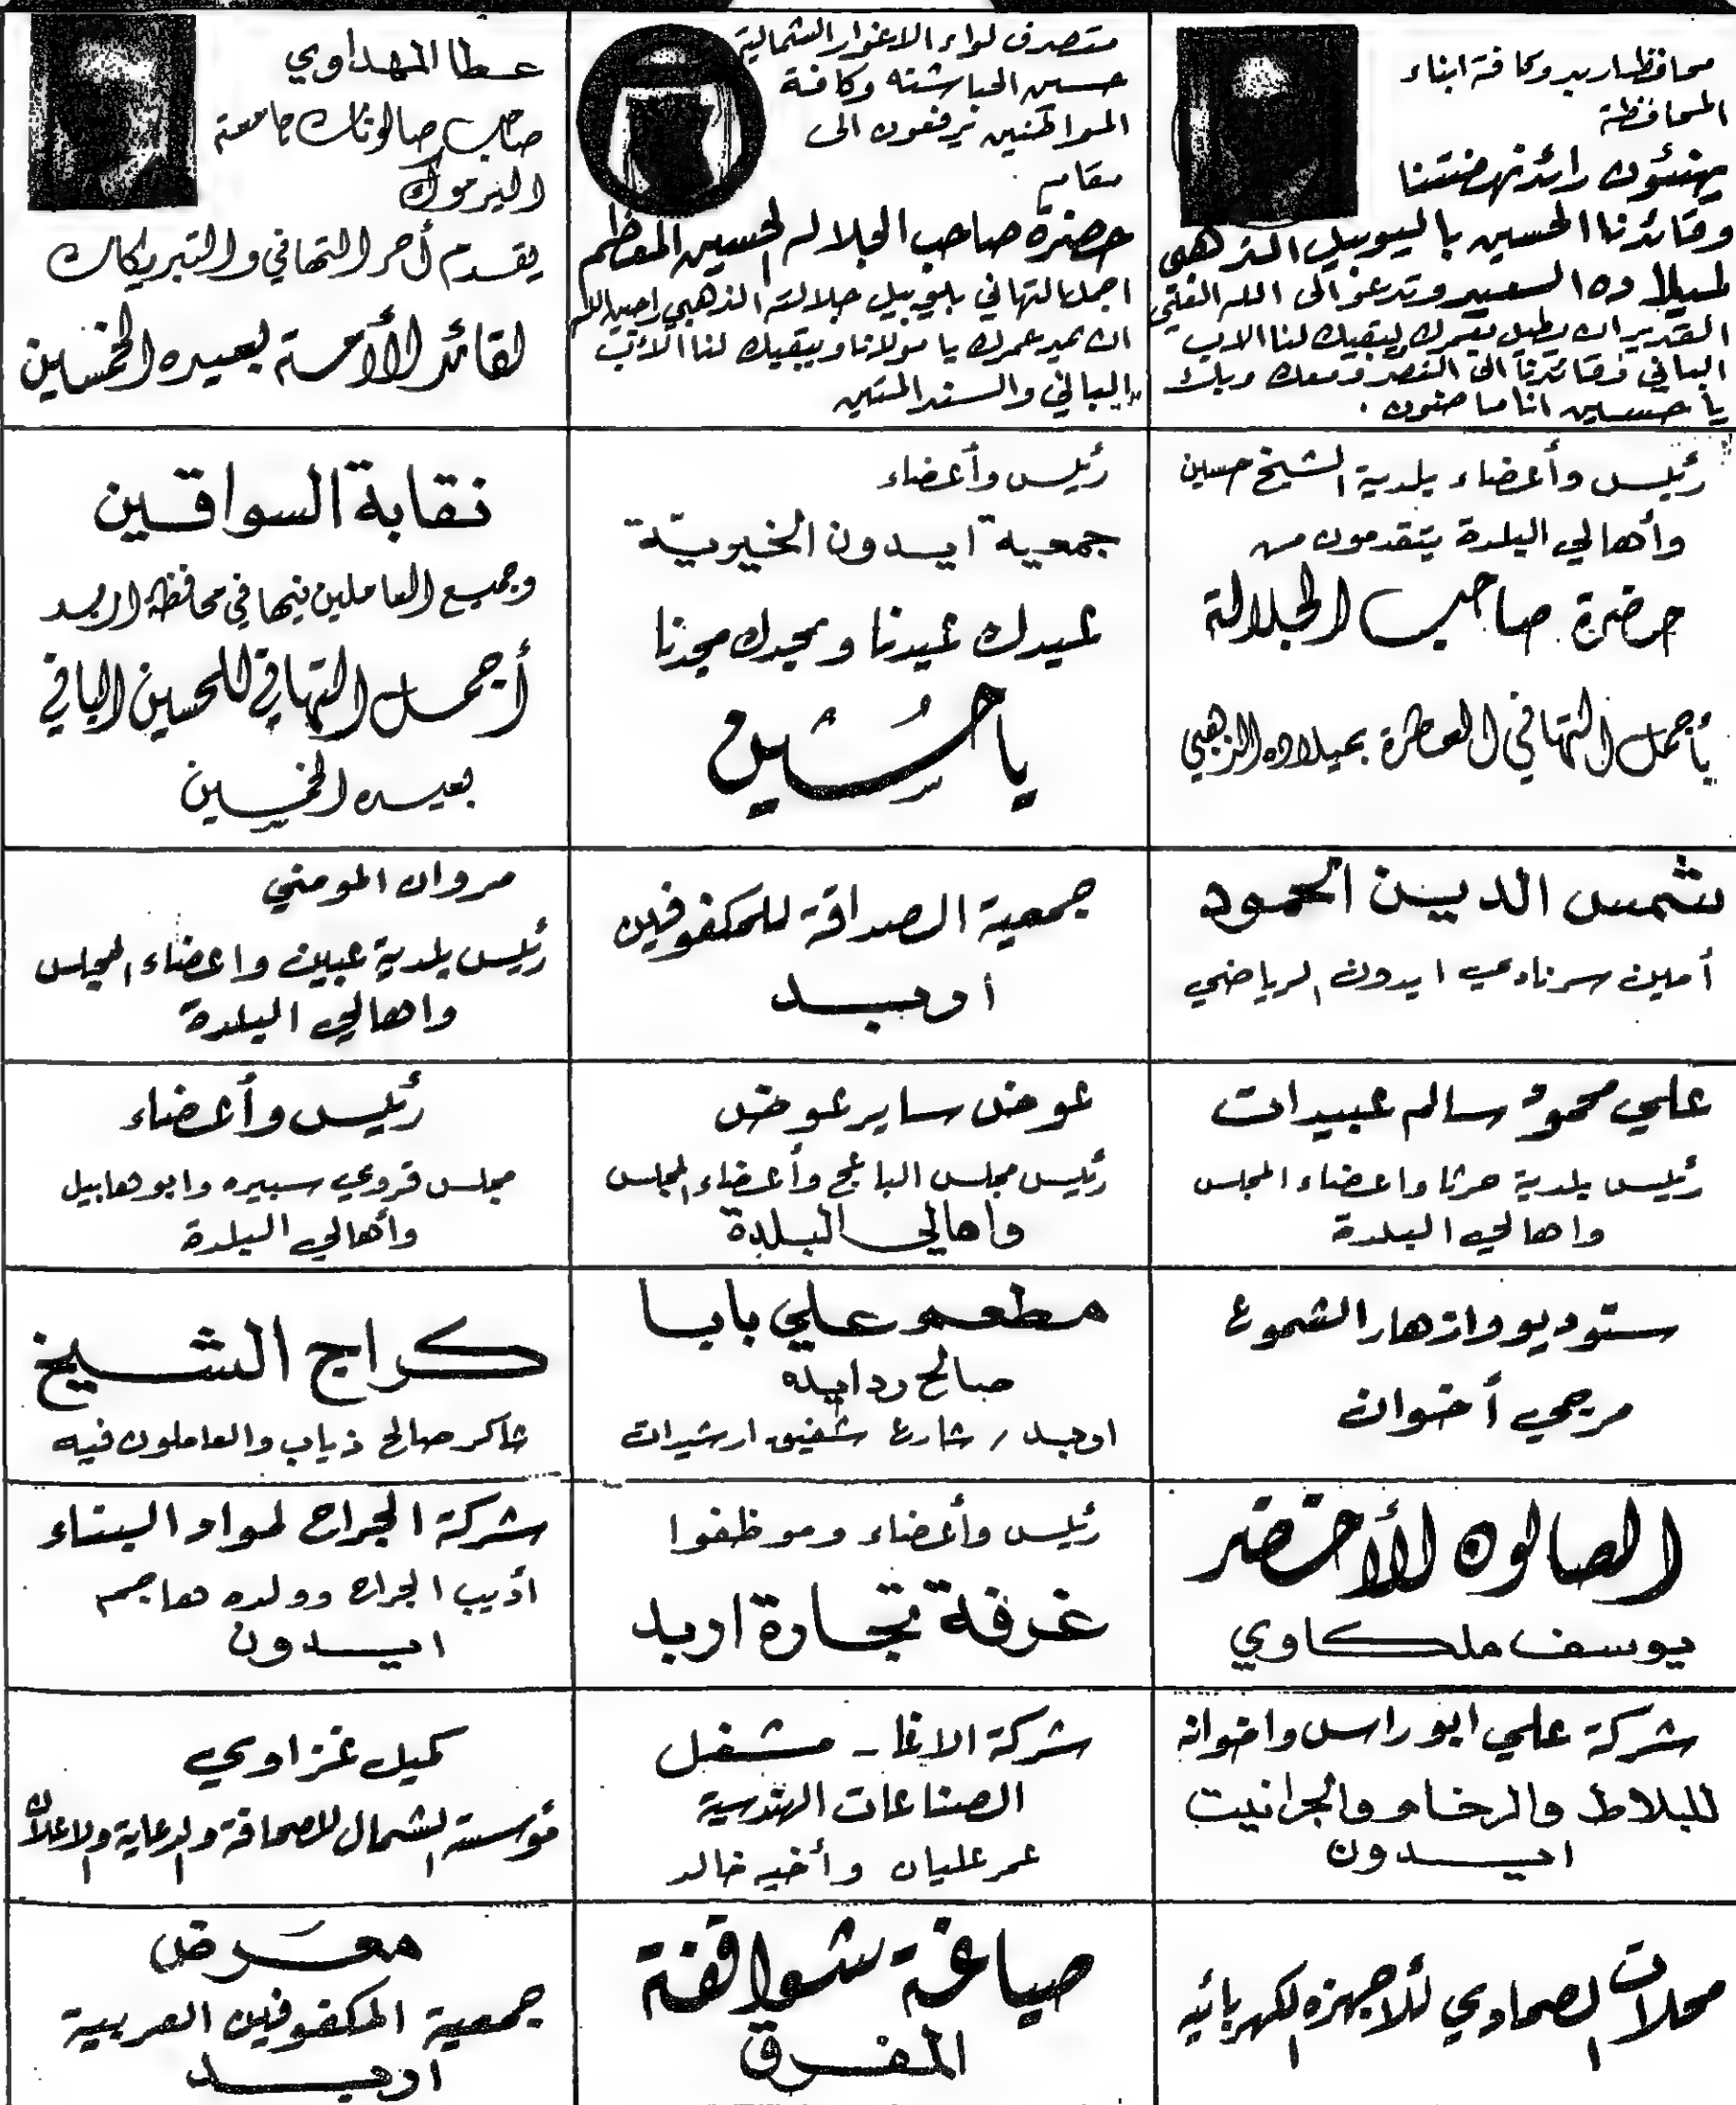 محافظ اربد وكافة ابناء
المحافظة
يهنئون رائد نهضتنا
وقائدنا الحسين باليوبيل الذهبي
لميلاده السعيد وتدعو الى الله العلي
القدير ان يطيل بعمرك ليبقيك لنا الاب
الباني وقائدنا الى النصر ومعك وبك
يا حسين انا ماضون .
متصرف لواء الاغوار الشمالية
حسين الحباشنه وكافة
المواطنين يرفعون الى
مقام
حضرة صاحب الجلالة الحسين المعظم
اجمل التهاني بيوبيل جلالته الذهبي راجين الله
ان يمد عمرك يا مولانا ويبقيك لنا الاب
الباني والسند المتين
عطا المهداوي
صاحب صالونات جامعة
اليرموك
يقدم أحر التهاني والتبريكات
لقائد الأمة بعيده الخمسين
رئيس وأعضاء بلدية الشيخ حسين
وأهالي البلدة يتقدمون من
حضرة صاحب الجلالة
بأجمل التهاني العطرة بميلاده الذهبي
رئيس وأعضاء
جمعية ايدون الخيرية
عيدك عيدنا ومجدك مجدنا
يا حسين
نقابة السواقين
وجميع العاملين فيها في محافظة اربد
أجمل التهاني للحسين الباني
بعيده الخمسين
شمس الدين الحمود
أمين سر نادي ايدون الرياضي
جمعية الصداقة للمكفوفين
اربد
مروان المومني
رئيس بلدية عبين واعضاء المجلس
واهالي البلدة
علي محمود سالم عبيدات
رئيس بلدية حرثا واعضاء المجلس
واهالي البلدة
عوض ساير عوض
رئيس مجلس الباعج وأعضاء المجلس
واهالي البلدة
رئيس وأعضاء
مجلس قروي سبيره وابو هابيل
وأهالي البلدة
ستوديو وازهار الشموع
مرجي أخوان
مطعم علي بابا
صالح ردايده
اربد / شارع شفيق ارشيدات
كراج الشيخ
شاكر صالح ذياب والعاملون فيه
الصالون الأخضر
يوسف ملكاوي
رئيس وأعضاء وموظفوا
غرفة تجارة اربد
شركة الجراح لمواد البناء
أديب الجراح وولده هاجم
ايدون
شركة علي ابوراس واخوانه
للبلاط والرخام والجرانيت
ايدون
شركة الاغا - مشغل
الصناعات الهندسية
عمر عليان وأخيه خالد
كميل غزاوي
مؤسسة الشمال للصحافة والدعاية والاعلان
محلات الصماوي للأجهزة الكهربائيه
صياغة شواقفة
المفرق
معرض
جمعية المكفوفين العربية
اربد